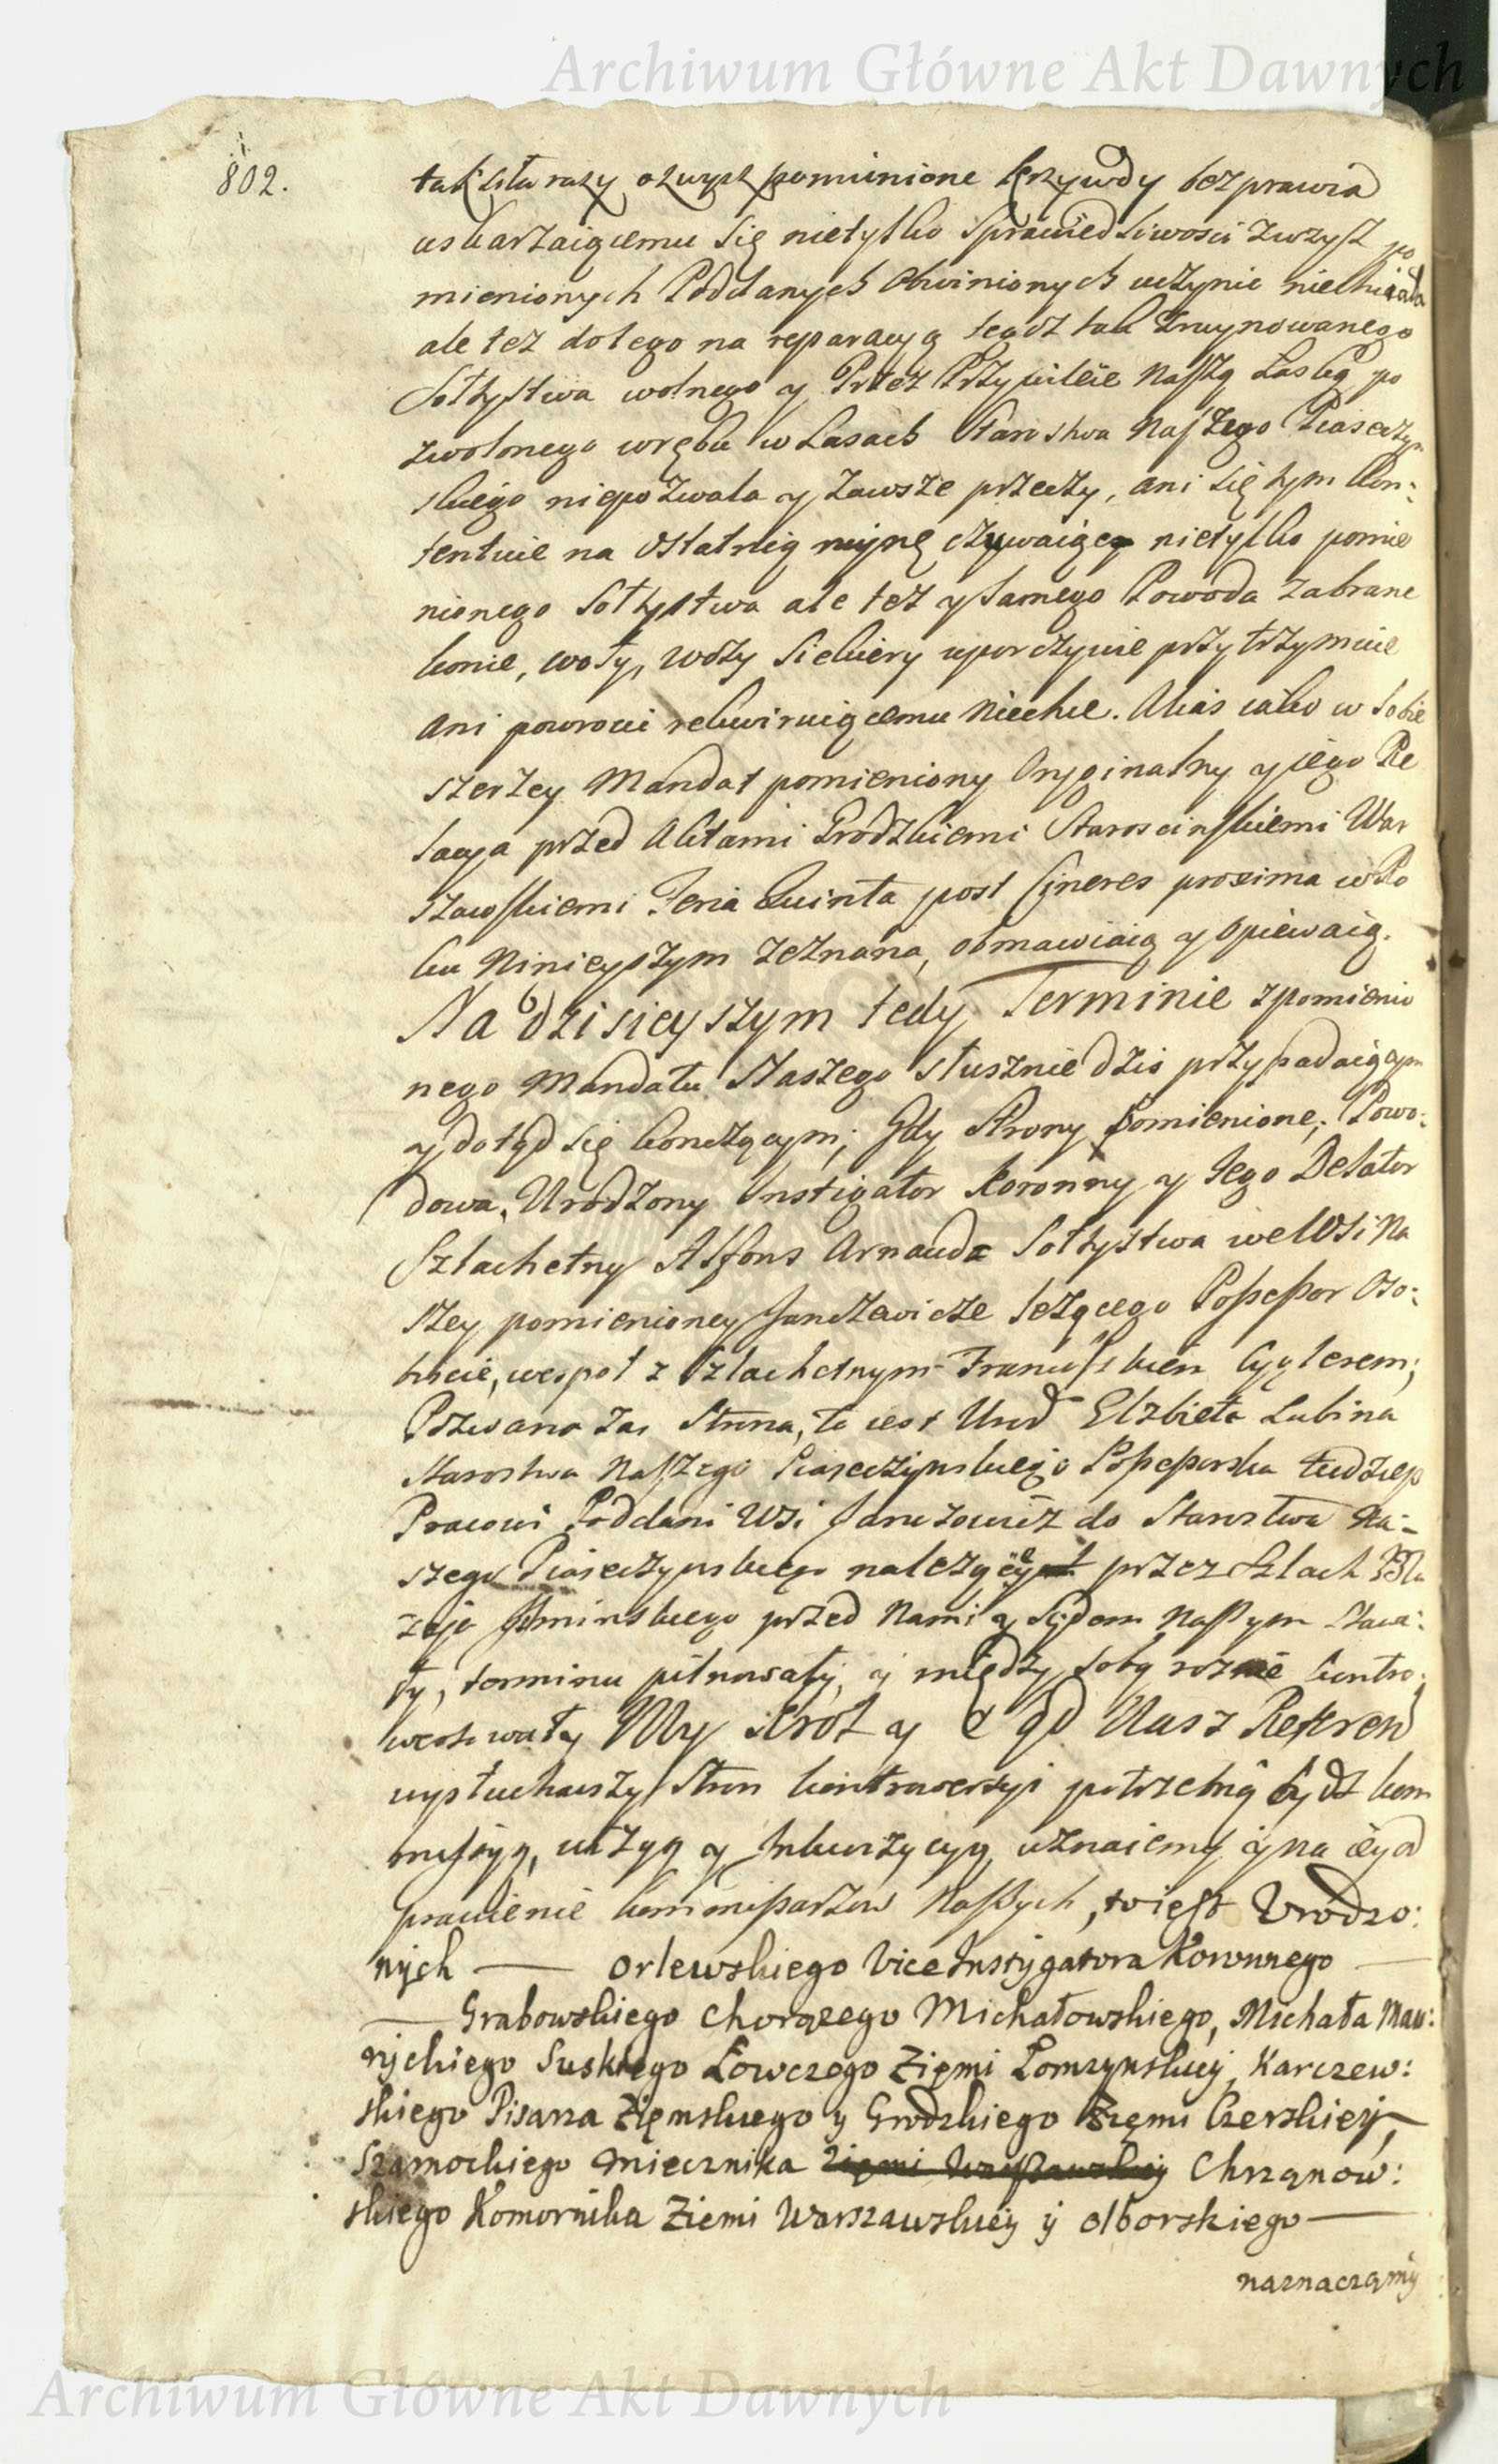 Archiwum Główne Akt Dawnych
802.
tak wiele razy o zwysz pomienione krzywdy bezprawia
uskarzaiącemu się nietylko Sprawiedliwości zwysz po
mienionych Poddanych Obwinionych uczynic niechciała
ale tez do tego na reparacyą tegoz tak zruynowanego
Sołtystwa wolnego y Przez Przywileie Naszą Łaską po
zwolonego wrębu w Lasach Starostwa Naszego Piaseczyn
skiego niepozwala y zawsze przeczy, ani się tym kon:
tentuie na Ostatnią ruynę czuwaiąc nietylko pomie
nionego Sołtystwa ale tez y samego Powoda zabrane
konie, woły, wozy Siekiery uporczywie przytrzymuie
ani powrocic rekwiruiącemu niechce. Aliàs iako w sobie
szerzey Mandat pomieniony Oryginalny y iego Re
lacya przed Aktami Grodzkiemi Staroscinskiemi War
szawskiemi Feria Quinta post Cineres proxima w Ro
ku Ninieyszym zeznana, obmawiaią y opiewaią.
Na dzisieyszym tedy Terminie z pomienio
nego Mandatu Naszego słusznie dzis przypadaiącym
y dotąd się konczącym; Gdy Strony pomienione, Powo:
dowa, Urodzony Instigator Koronny y Jego Delator
Szlachetny Alfons Arnaud Sołtystwa we Wsi Na
szey pomienioney Janczewicze leżącego Possessor Oso:
biscie, wespoł z Szlachetnym Franciszkiem Cyglerem;
Pozwana zas Strona, to iest Urod Elzbieta Lubina
Starostwa Naszego Piaseczynskiego Possessorka tudziesz
Pracowi Poddani Wsi Janczewicz do Starostwa Na-
szego Piaseczynskiego należącey przez Szlach Bła
zeja Ominskiego przed Nami y Sądem Naszym Stawa:
ły, terminu pilnowały, y między sobą rożnie kontro:
wertowały My Krol y Nasz Referend
wysłuchawszy Stron kontrowersyi potrzebną bydz kom
missyą, wizyą y Inkwizycyą uznaiemy, y na iey od
prawienie kommissarzow Naszych, to iest Urodzo:
nych — Orlewskiego Vice Instygatora Koronnego —
— Grabowskiego Chorązego Michałowskiego, Michała Maw:
rychiego Suskiego Łowczego Ziemi Łomzynskiey, Karczew:
skiego Pisarza Ziemskiego y Grodzkiego Ziemi Czerskiey,
Szamockiego Miecznika Ziemi Warszawskiey Chrzanow:
skiego Komornika Ziemi Warszawskiey y Olborskiego —
naznaczamy
Archiwum Główne Akt Dawnych